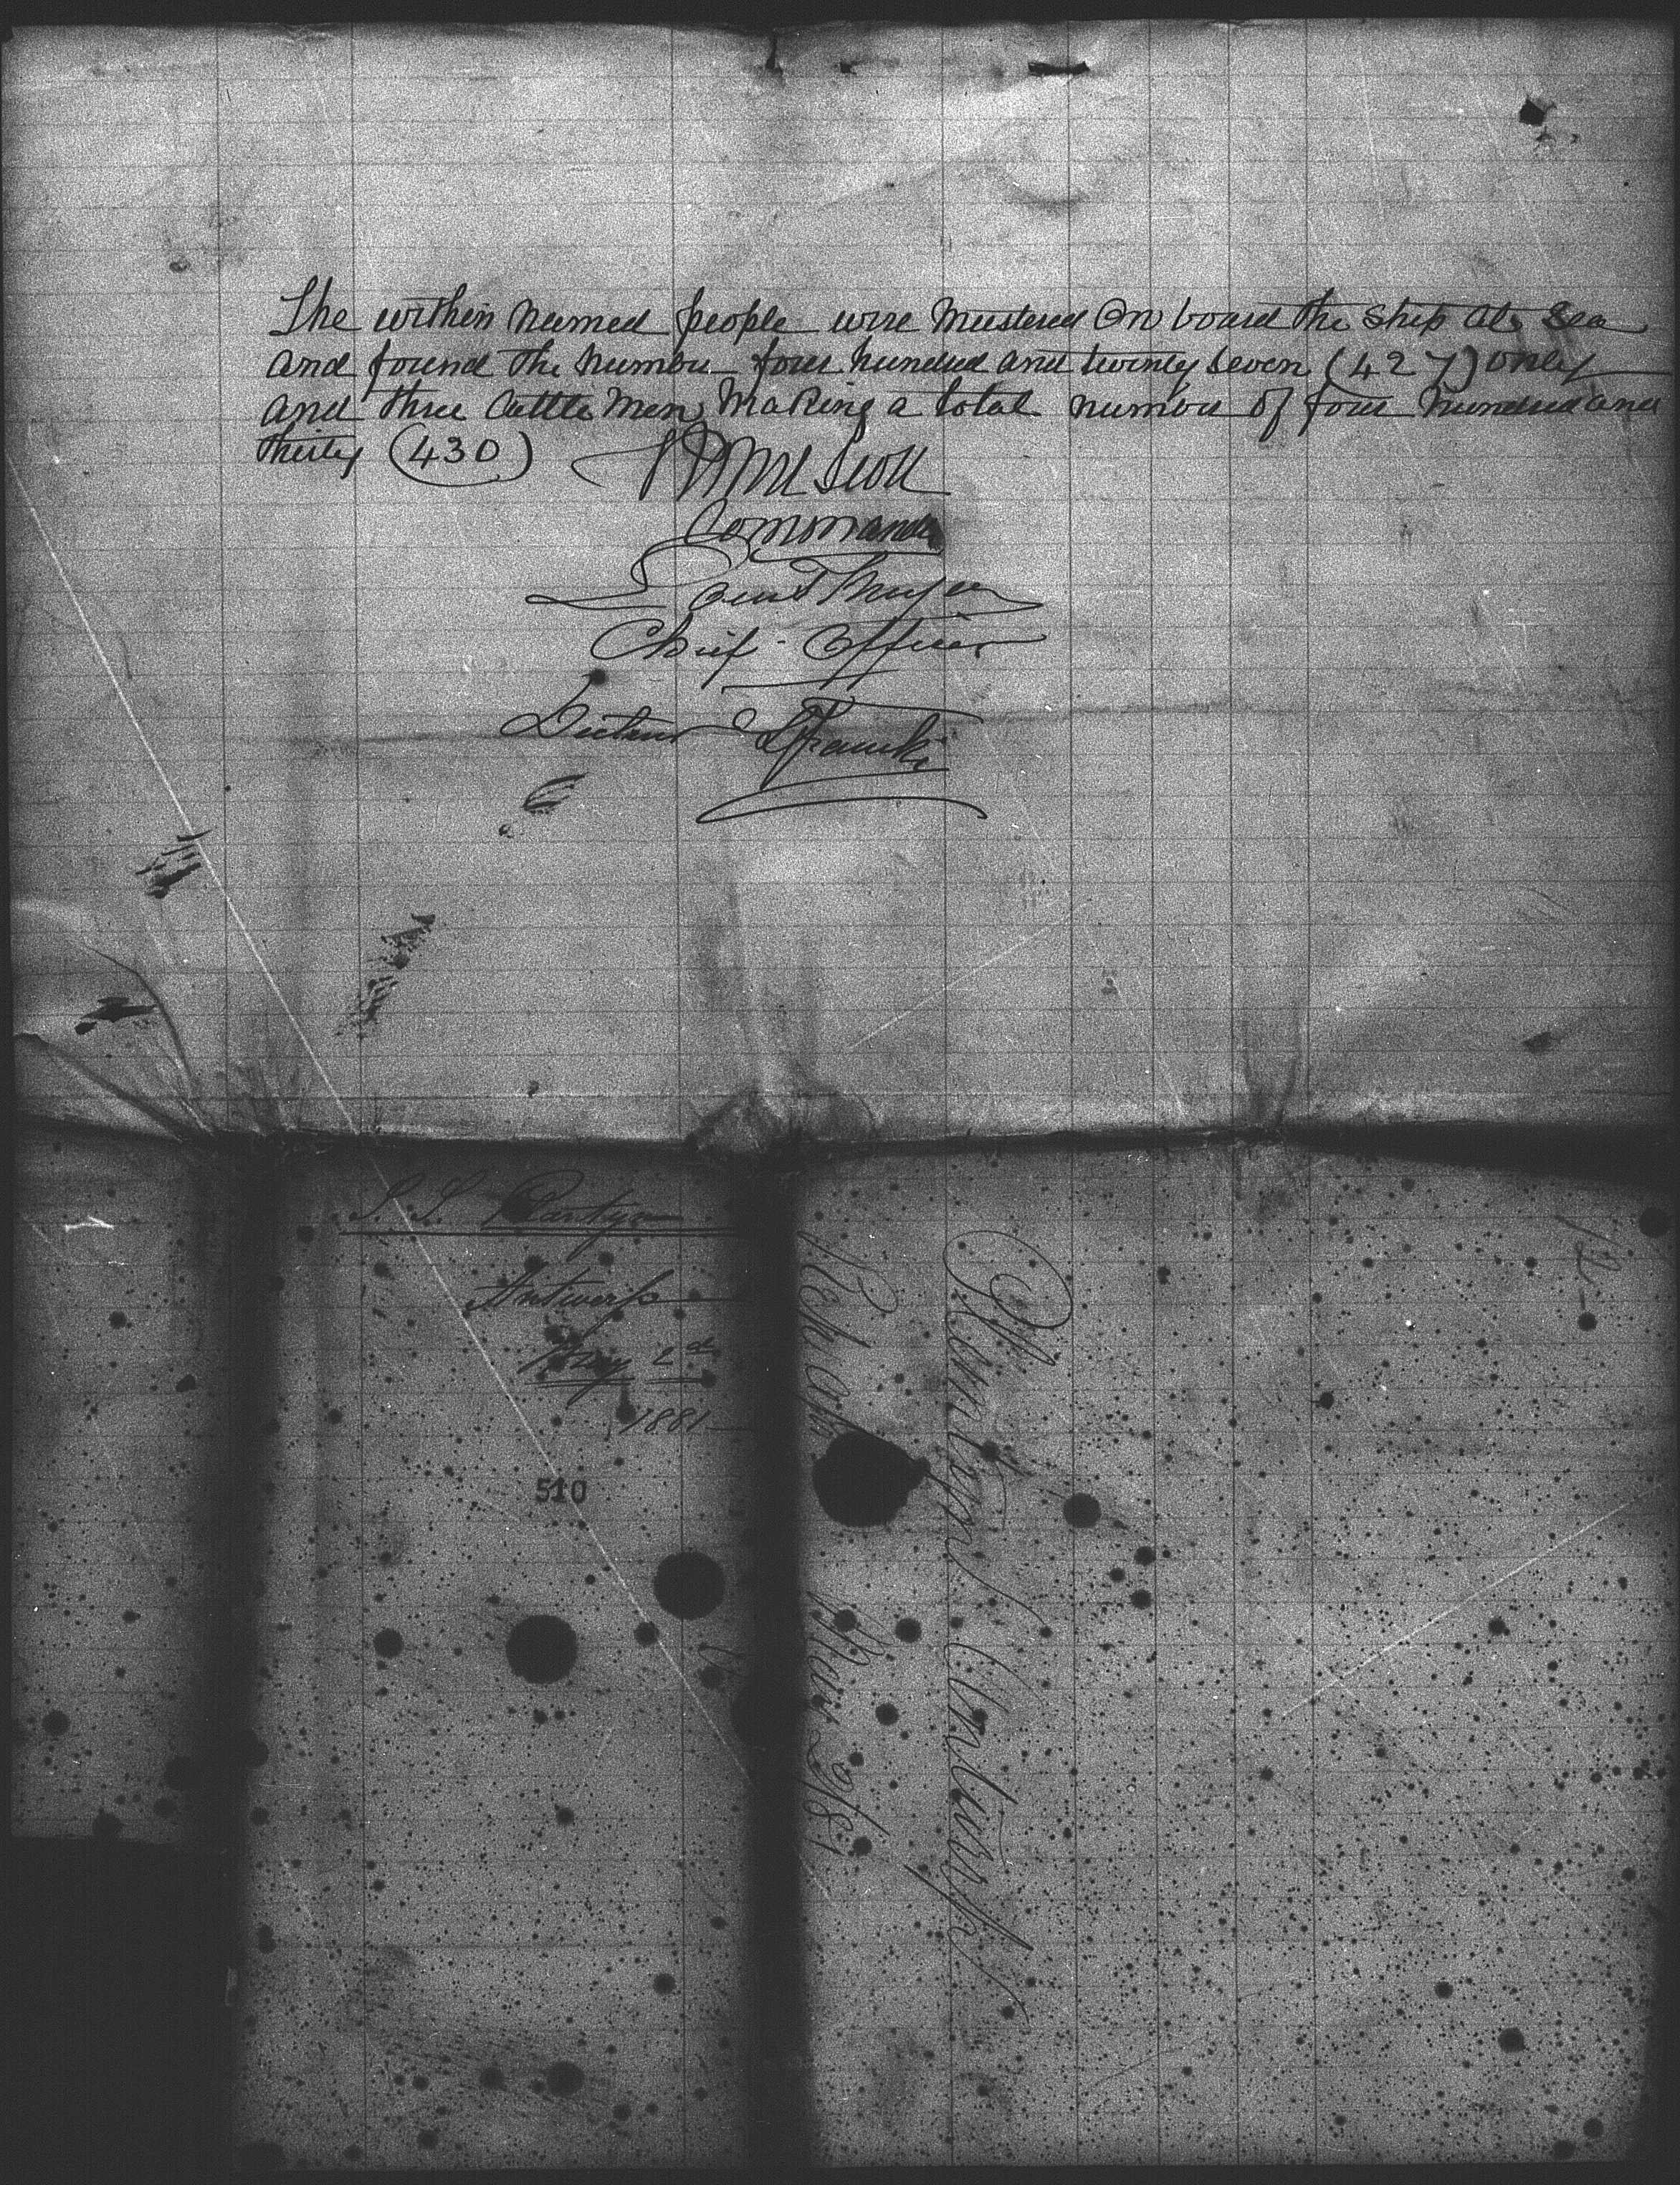 The within named people were mustered on board the ship at Sea
and found the number four hundred and twenty seven (427) only
and three Cattle Men, Making a total number of four hundred and
thirty (430)
Scott
Commander
Chief Officer
Docteur
S. S.
Antwerp
May 2d
1881
510
May 2/81
Antwerp
12